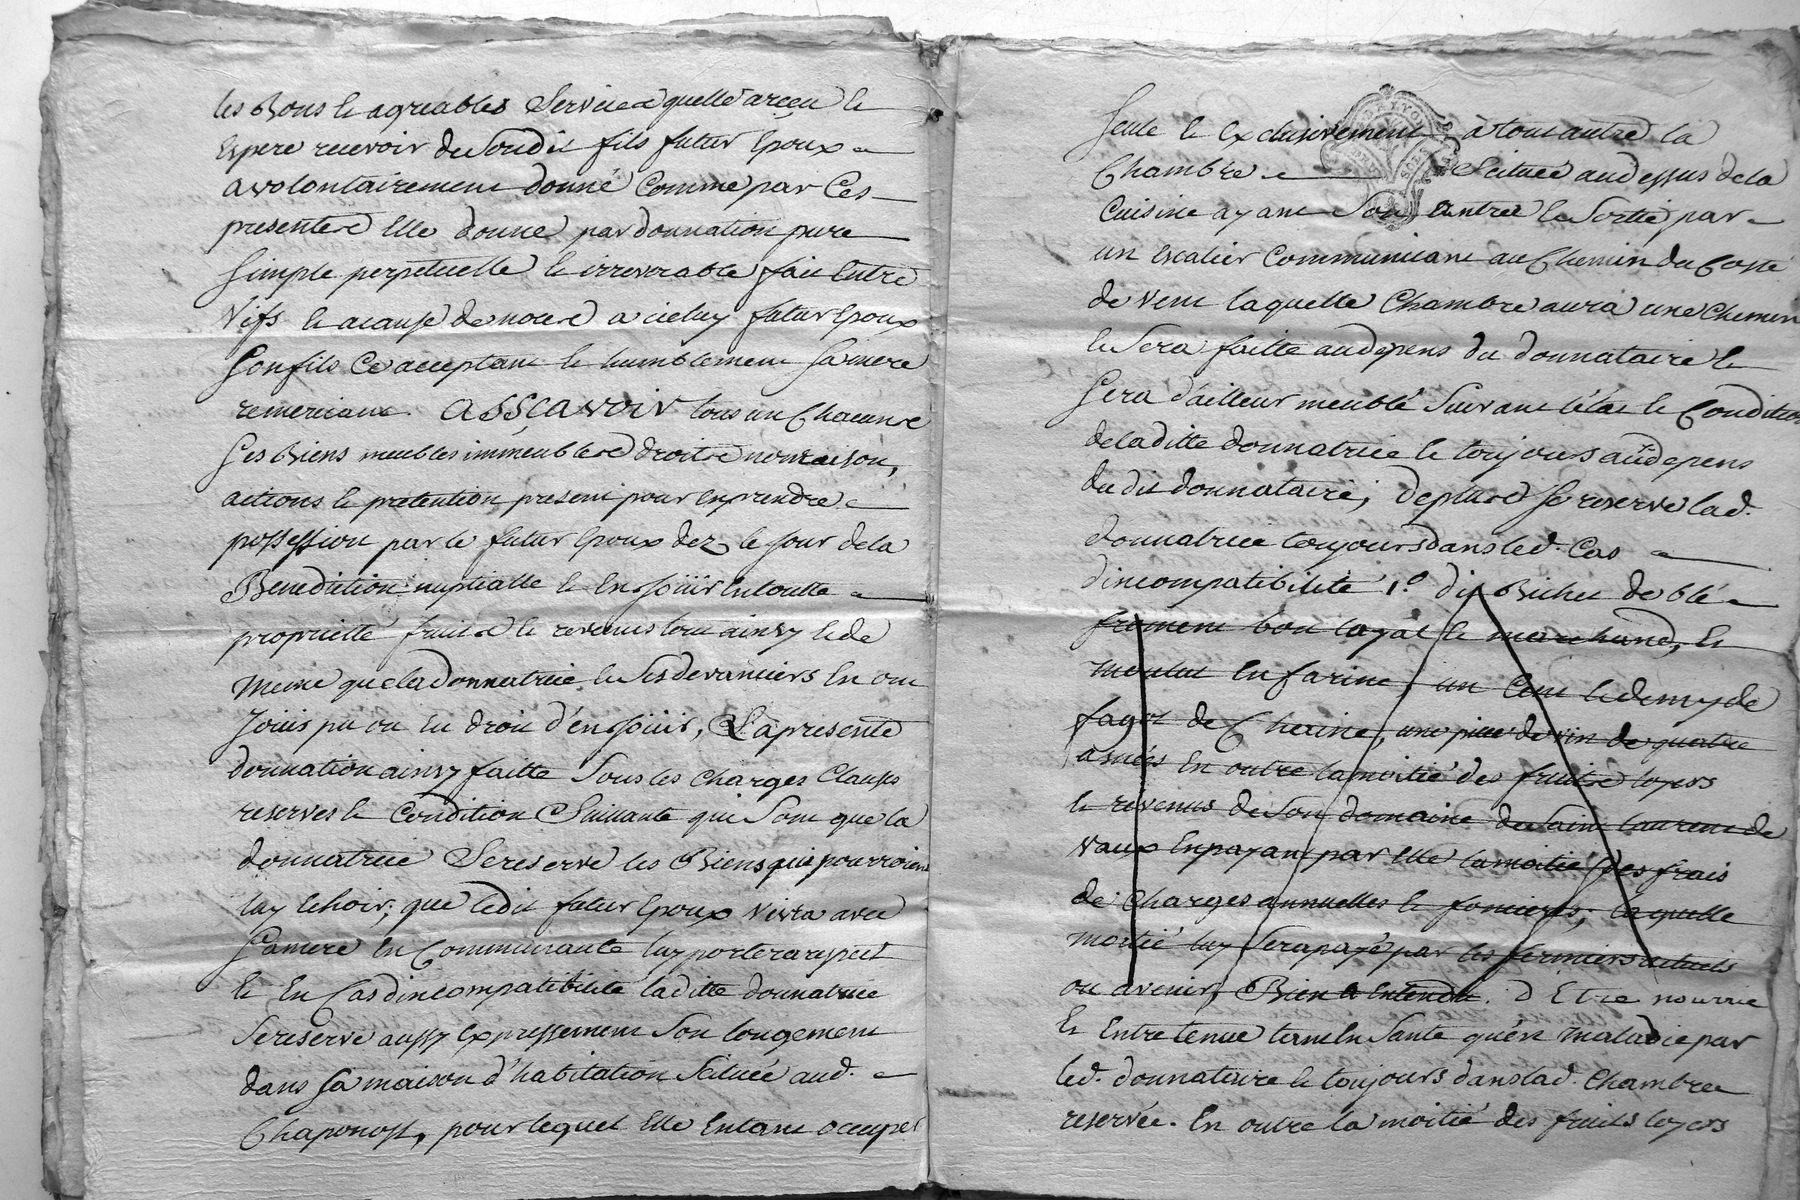 les Bons et agreables Services quelle a reçu et
Espere recevoir de Sondit fils futur Epoux
a volontairement donné Comme par Ces
presentes Elle donne par donnation pure
Simple perpetuelle et irrevocable fait Entre
Vifs et acause de noces a iceluy futur Epoux
Son fils Ce acceptant et humblement Sa mere
remerciant. ASSÇAVOIR tous un Chacuns
Ses Biens meubles immeubles droits noms raison,
actions et pretention present pour en prendre
possession par le futur Epoux dez le Jour de la
Benediction nuptialle et En Joüir En toutte
proprietté fruits et revenus tout ainsy et de
meme que la donnatrice et Ses devanciers En ont
Joüis pu ou Eu droit d'en Joüir, La presente
donnation ainsy faitte Sous les Charges Clauses
reserves et Condition Suivante qui Sont que la
donnatrice Se reserve les Biens qui pourroient
luy Echoir, que ledit futur Epoux vivra avec
Sa mere En Communauté luy portera respect
Et En Cas d'incompatibilité laditte donnatrice
Se reserve aussy Expressement Son logement
dans Sa maison d'habitation Scituée aud.
Chaponost, pour lequel Elle Entant occuper
Seule et exclusivement à tout autre la
Chambre Scituée au dessus de la
Cuisine ayant Son Entrée et Sortie par
un Escalier Communicant au Chemin du Costé
de vent laquelle Chambre aura une Chemin
et Sera faitte au depens du donnataire et
Sera d'ailleur meublé Suivant l'état et Condition
de laditte donnatrice et toujours aù depens
du dit donnataire; de plus Se reserve lad.
donnatrice toujours dans led. Cas
d'incompatibilité 1.º dix Bichet de blé
froment bon loyal et marchand, et
moulut En farine, un Cent et demy de
fagot de Chaine, une piece de vin de quatre
asnées En outre la moitié des fruits loyers
et revenus de Son domaine de Saint laurent de
vaux En payant par Elle la moitié des frais
de Charges annuelles et fonciers, laquelle
moitié luy Sera payé par les fermiers actuels
ou avenir, Bien Entendu. d'Etre nourrie
Et Entretenue tant En Santé qu'én maladie par
led. donnataire et toujours dans lad. Chambre
reservée. En outre la moitié des fruits loyers